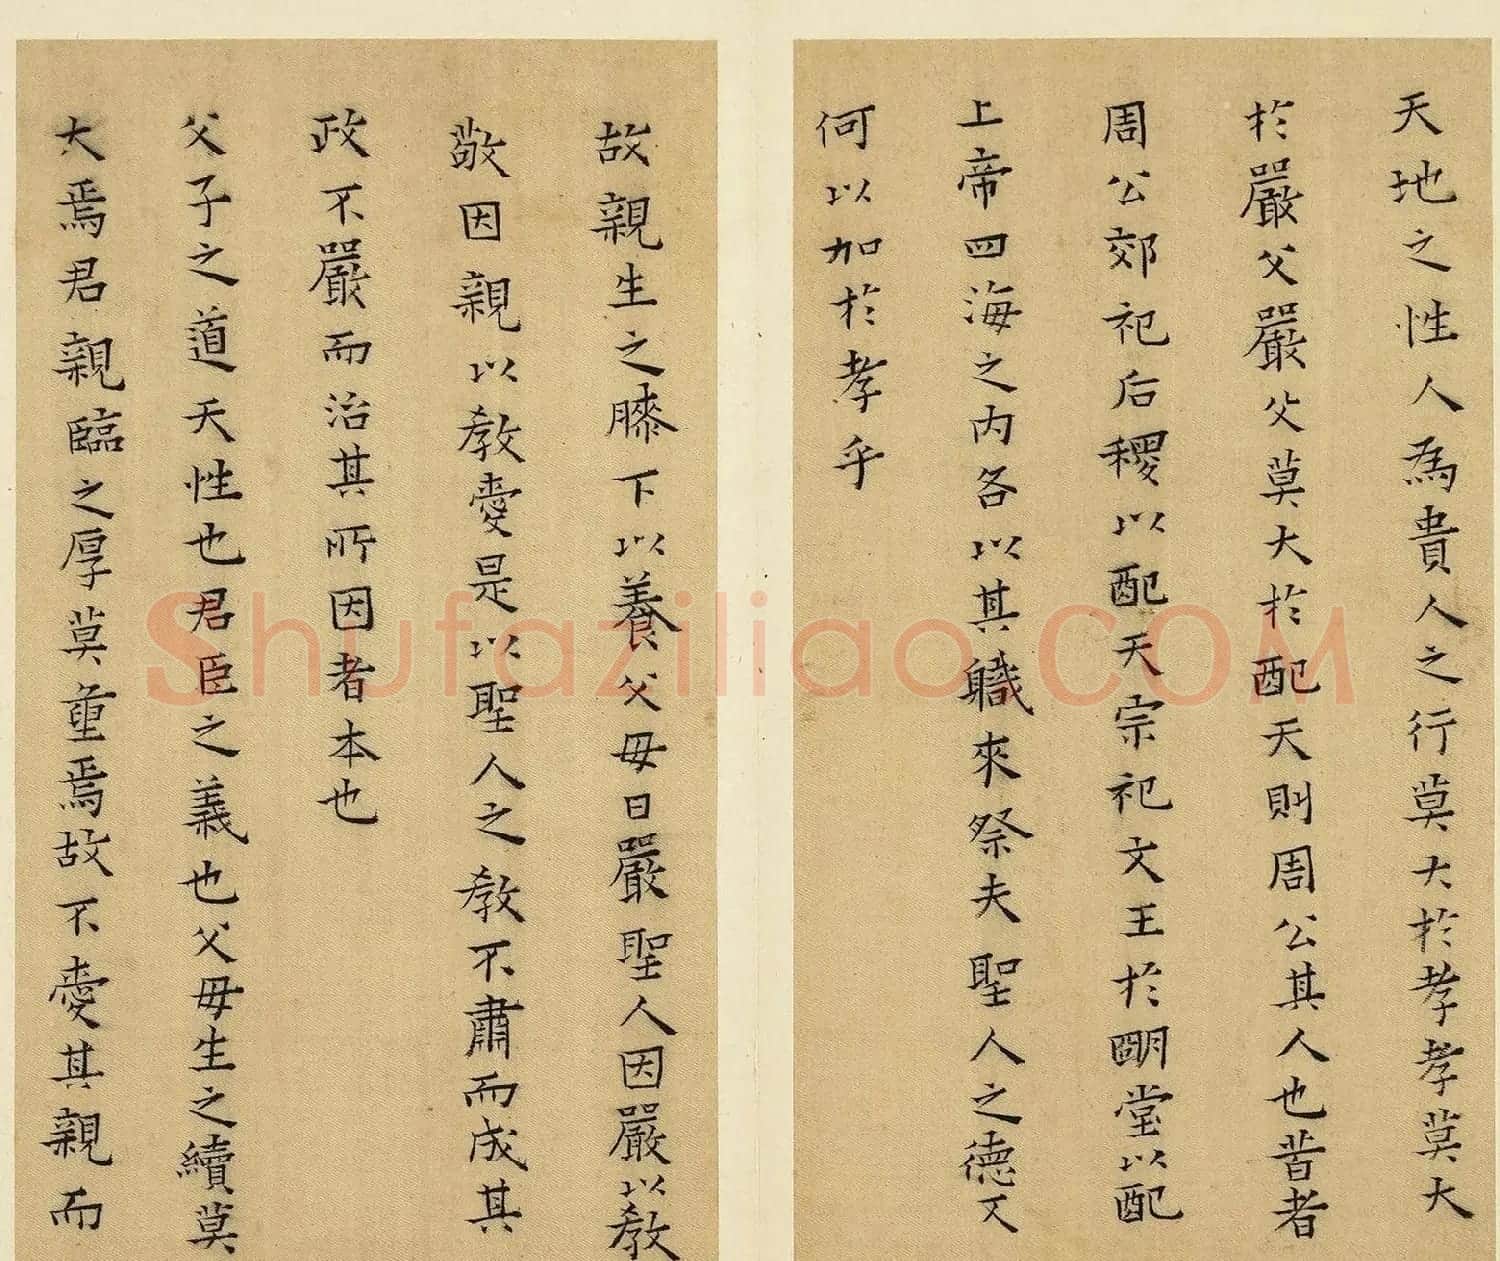 天地之性人為貴人之行莫大於孝孝莫大
於嚴父嚴父莫大於配天則周公其人也昔者
周公郊祀后稷以配天宗祀文王於明堂以配
上帝四海之內各以其職來祭夫聖人之德又
何以加於孝乎
故親生之膝下以養父母日嚴聖人因嚴以教
敬因親以教愛是以聖人之教不肅而成其
政不嚴而治其所因者本也
父子之道天性也君臣之義也父母生之續莫
大焉君親臨之厚莫重焉故不愛其親而
Shufaziliao.COM